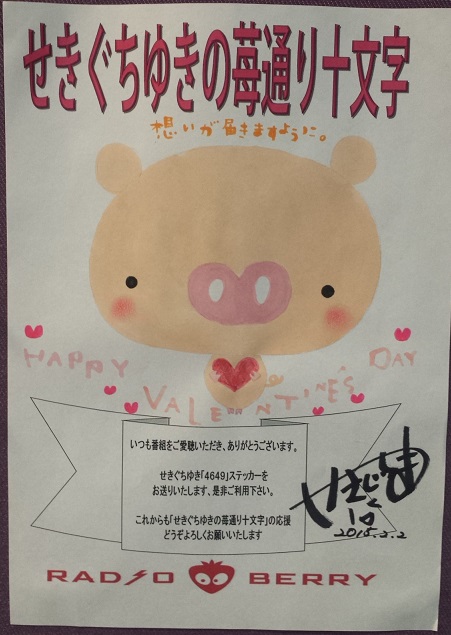 せきぐちゆきの苺通り十文字
想いが届きますように。
HAPPY VALENTINE'S DAY
いつも番組をご愛聴いただき、ありがとうございます。
せきぐちゆき「4649」ステッカーを
お送りいたします、是非ご利用下さい。
これからも「せきぐちゆきの苺通り十文字」の応援
どうぞよろしくお願いいたします
2015.2.2
RADIO BERRY